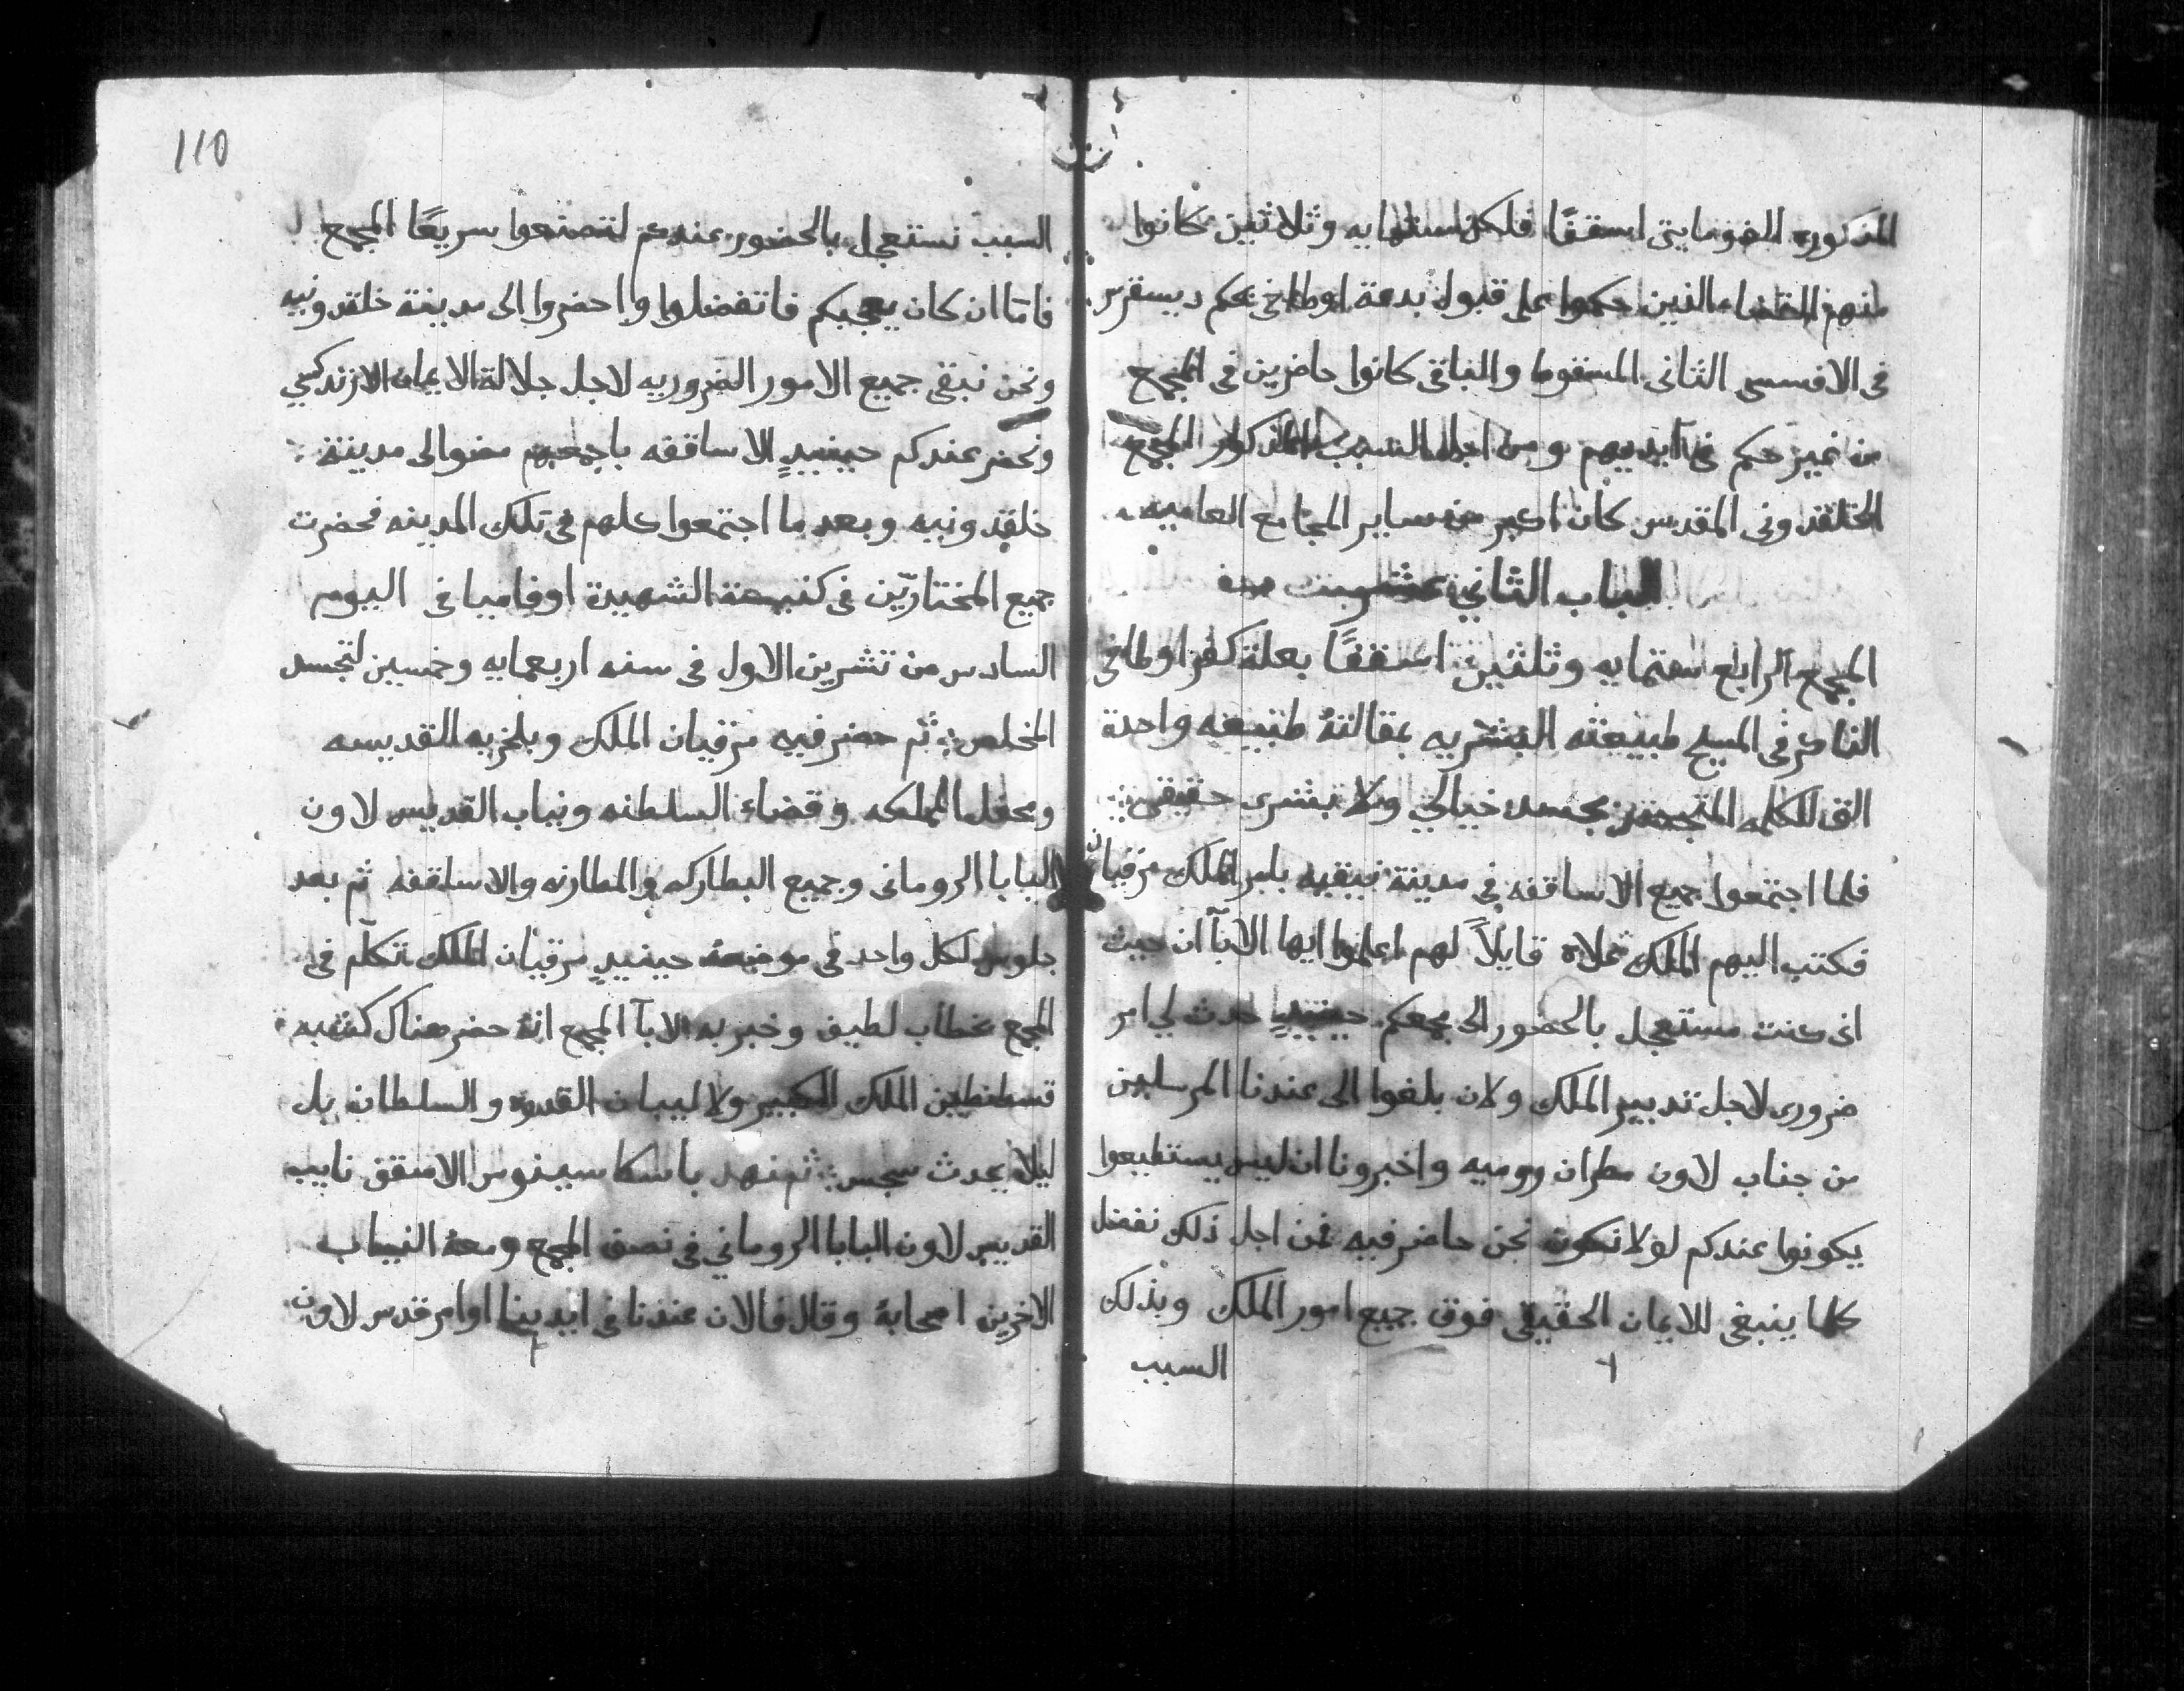 المذكوره الفومايتى اسقفًا فلكن استمايه وثلاثين كانوا
منهم القضاء الذين حكموا على قبول بدعة اوطاخي بحكم ديسقرس
فى الافسسى الثانى المسفوما والباقى كانوا حاضرين فى المجمع
من غير حكم فى ايديهم ومن اجل السبب المذكور المجمع
الخلقدونى المقدس كان اكبر من ساير المجامع العاميه
الباب الثاني عشر
المجمع الرابع ستمايه وثلثين اسقفًا بعلة كفر اوطاخى
الناكر فى المسيح طبيعته البشريه بمقالتهُ طبيعه واحدة
الكلمه المتجسد بجسد خيالي ولا بشرى حقيقى
فلما اجتمعوا جميع الاساقفه فى مدينة نيقيه بامر الملك مرقيان
فكتب اليهم الملك قايلاً لهم اعلموا ايها الابآ ان حيث
انى كنت مستعجل بالحضور الى مجمعكم حينيدٍ حدث لي امر
ضرورى لاجل تدبير الملك ولان بلغوا الى عندنا المرسلين
من جناب لاون مطران روميه واخبرونا ان ليس يستطيعوا
يكونوا عندكم لولا نكون نحن حاضر فيه فمن اجل ذلك نفضل
كلما ينبغى للايمان الحقيقى فوق جميع امور الملك وبذلك
السبب
110
السبب نستعجل بالحضور عندكم لتصنعوا سريعًا المجمع
فامّا ان كان يعجبكم فاتفضلوا واحضروا الى مدينة خلقدونيه
ونحن نبقى جميع الامور الضروريه لاجل جلالة الايمان الارتدكسي
ونحضر عندكم حينيدٍ الاساقفه باجمعهم مضوا الى مدينة
خلقدونيه وبعد ما اجتمعوا كلهم فى تلك المدينه فحضرت
جميع المختاريّن فى كنيسة الشهيدة اوفاميا فى اليوم
السادس من تشرين الاول فى سنه اربعمايه وخمسين لتجسد
المخلص ثم حضر فيه مرقيان الملك وبلخريه القديسه
ومحفل المملكه وقضاء السلطنه ونياب القديس لاون
البابا الرومانى وجميع البطاركه والمطارنه والاساقفه ثم بعد
جلوس لكل واحد فى موضعهُ حينيدٍ مرقيان الملك اتكلّم فى
المجمع بخطاب لطيف وخبر به الابآ المجمع انهُ حضر هناك كشبه
قسطنطين الملك الكبير ولا لبيان القدره والسلطان بل
ليلا يحدث سجس ثم نهد باسكاسينوس الاسقف نايب
القديس لاون البابا الروماني فى نصف المجمع ومعهُ النياب
الاخرين اصحابهُ وقال فالان عندنا فى ايدينا اوامر قدس لاون